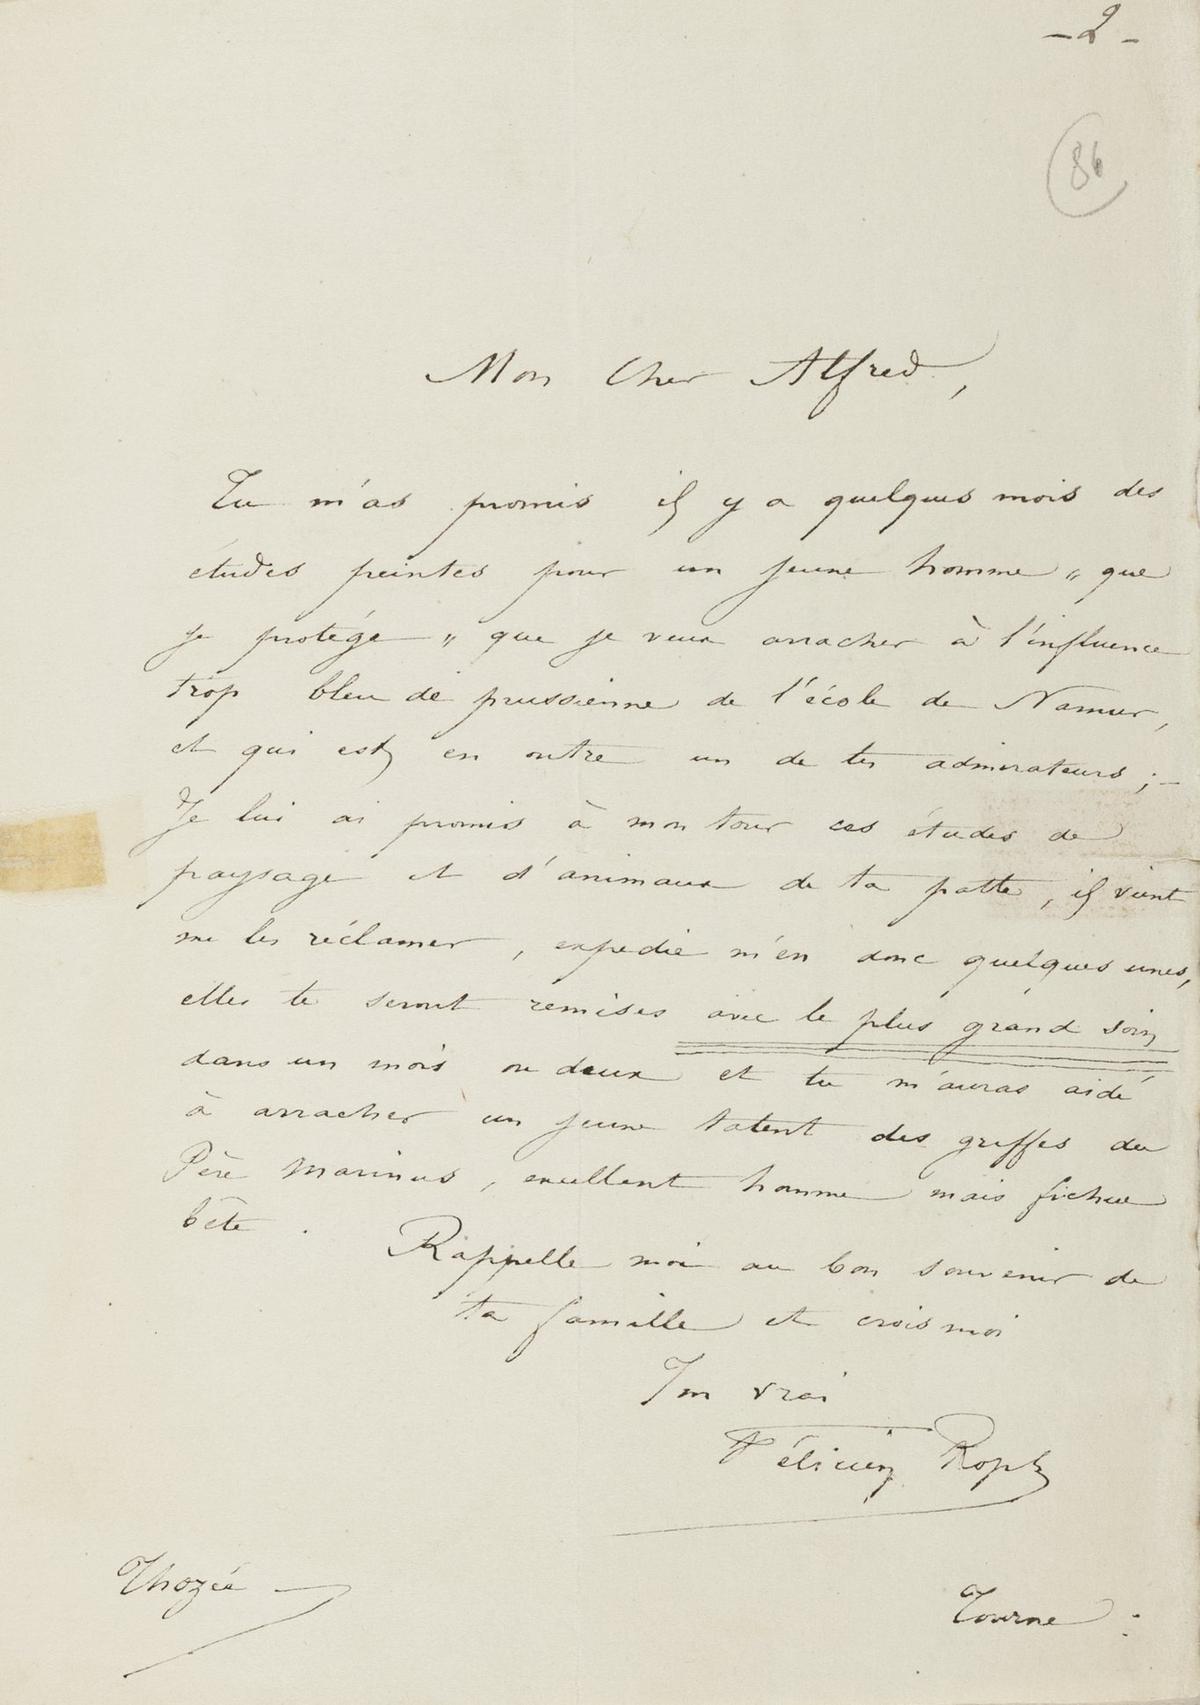 - 2 -
86
Mon Cher Alfred,
Tu m'as promis il y a quelques mois des
études peintes pour un jeune homme „ que
je protége „ que je veux arracher à l'influence
trop bleu de prussienne de l'école de Namur,
et qui est en outre un de tes admirateurs ; –
Je lui ai promis à mon tour ces études de
paysage et d'animaux de ta patte, il vient
me les réclamer, expedie m'en donc quelques unes,
elles te seront remises avec le plus grand soin
dans un mois ou deux et tu m'auras aidé
à arracher un jeune talent des griffes du
Père Marinus, excellent homme mais fichue
bête.
Rappelle moi au bon souvenir de
ta famille et crois moi
Ton vrai
Félicien Rops
Thozée
Tourne :